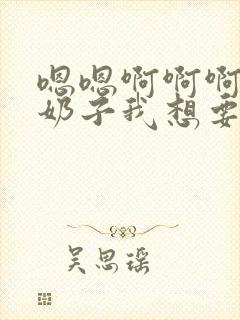 嗯嗯啊啊啊
奶子我想要
吴思瑶